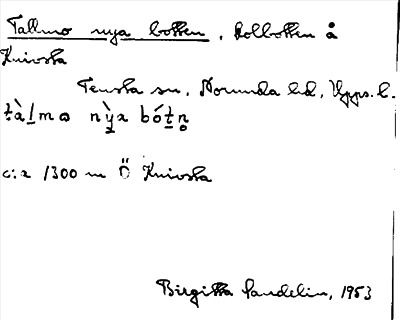 Tallmo nya botten, kolbotten å
Knivsta
Tensta sn, Norunda hd, Upps. l.
tàlmo nỳa bótn̥
c:a 1300 m Ö Knivsta
Birgitta Sandelin, 1953